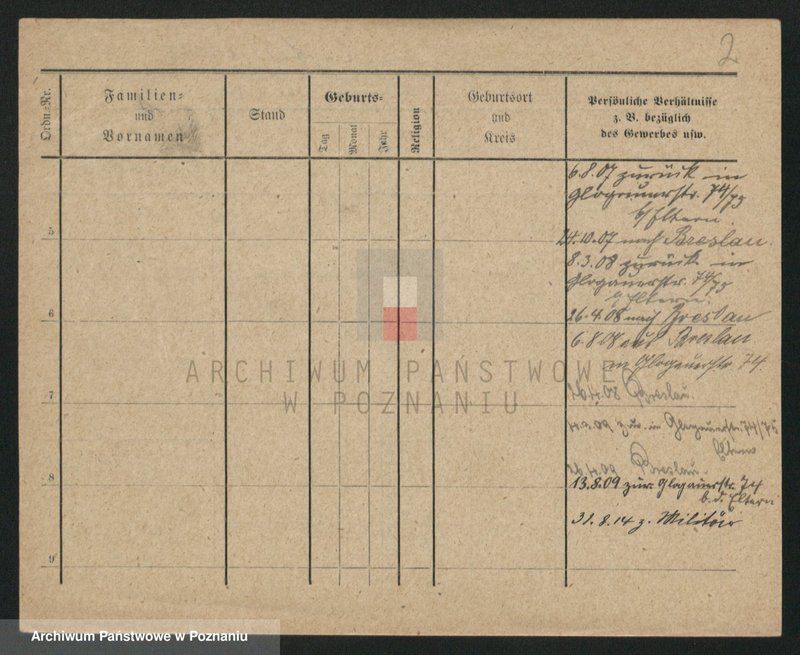 2
Ordn.-Nr.
Familien-
und
Vornamen
Stand
Geburts-
Tag
Monat
Jahr
Religion
Geburtsort
und
Kreis
Persönliche Verhältnisse
z. B. bezüglich
des Gewerbes usw.
6.8.07 zurück in
Glogauerstr. 74/75
b/Eltern.
5
24.10.07 nach Breslau.
8.3.08 zurück in
Glogauerstr. 74/75
b/Eltern.
6
26.4.08 nach Breslau
6.8.08 aus Breslau
in Glogauerstr. 74.
ARCHIWUM PAŃSTWOWE
W POZNANIU
7
Breslau.
09 zur. in Glogauerstr. 74/75
Eltern
8
09 Breslau.
13.8.09 zur. Glogauerstr. 74
b. d. Eltern
31.8.14 z. Militär
9
Archiwum Państwowe w Poznaniu